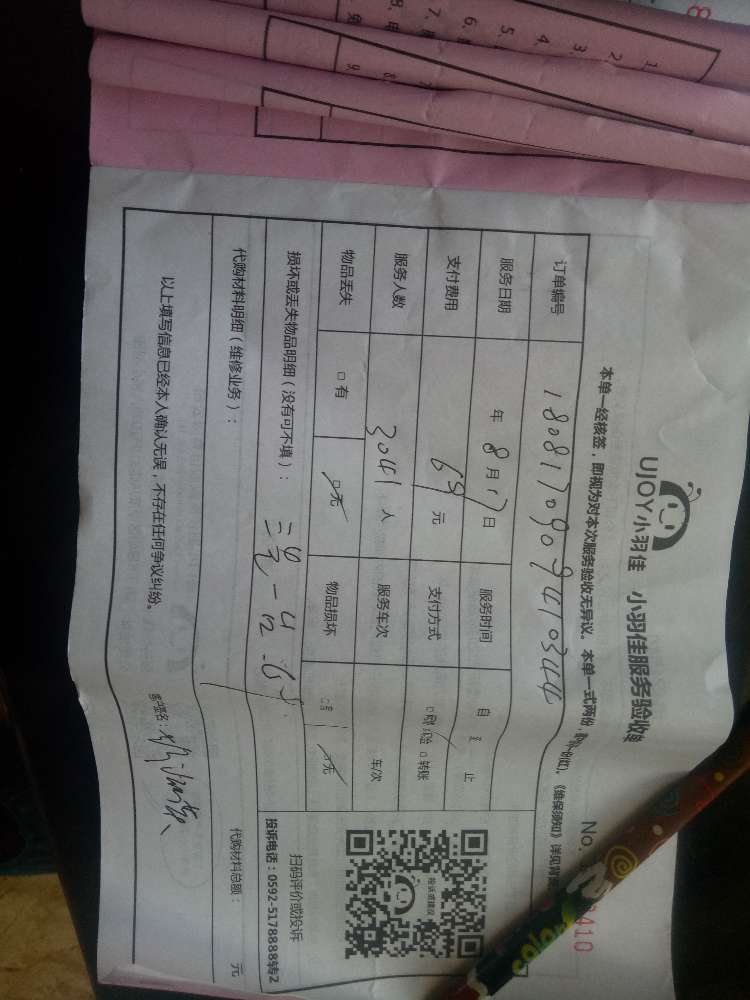 UJOY小羽佳 小羽佳服务验收单
No.
410
本单一经核签，即视为对本次服务验收无异议。本单一式两份，
《维保须知》详见背
订单编号 1808170909410344
服务日期 年 8 月 17 日 服务时间 自 止
支付费用 69 元 支付方式 转账
服务人数 人 服务车次 车/次
物品丢失 □有 □无 物品损坏 □无
损坏或丢失物品明细（没有可不填）：
代购材料明细（维修业务）：
代购材料总额： 元
以上填写信息已经本人确认无误，不存在任何争议纠纷。
客户签名：
投诉或建议
扫码评价或投诉
投诉电话：0592-5178888转2
color